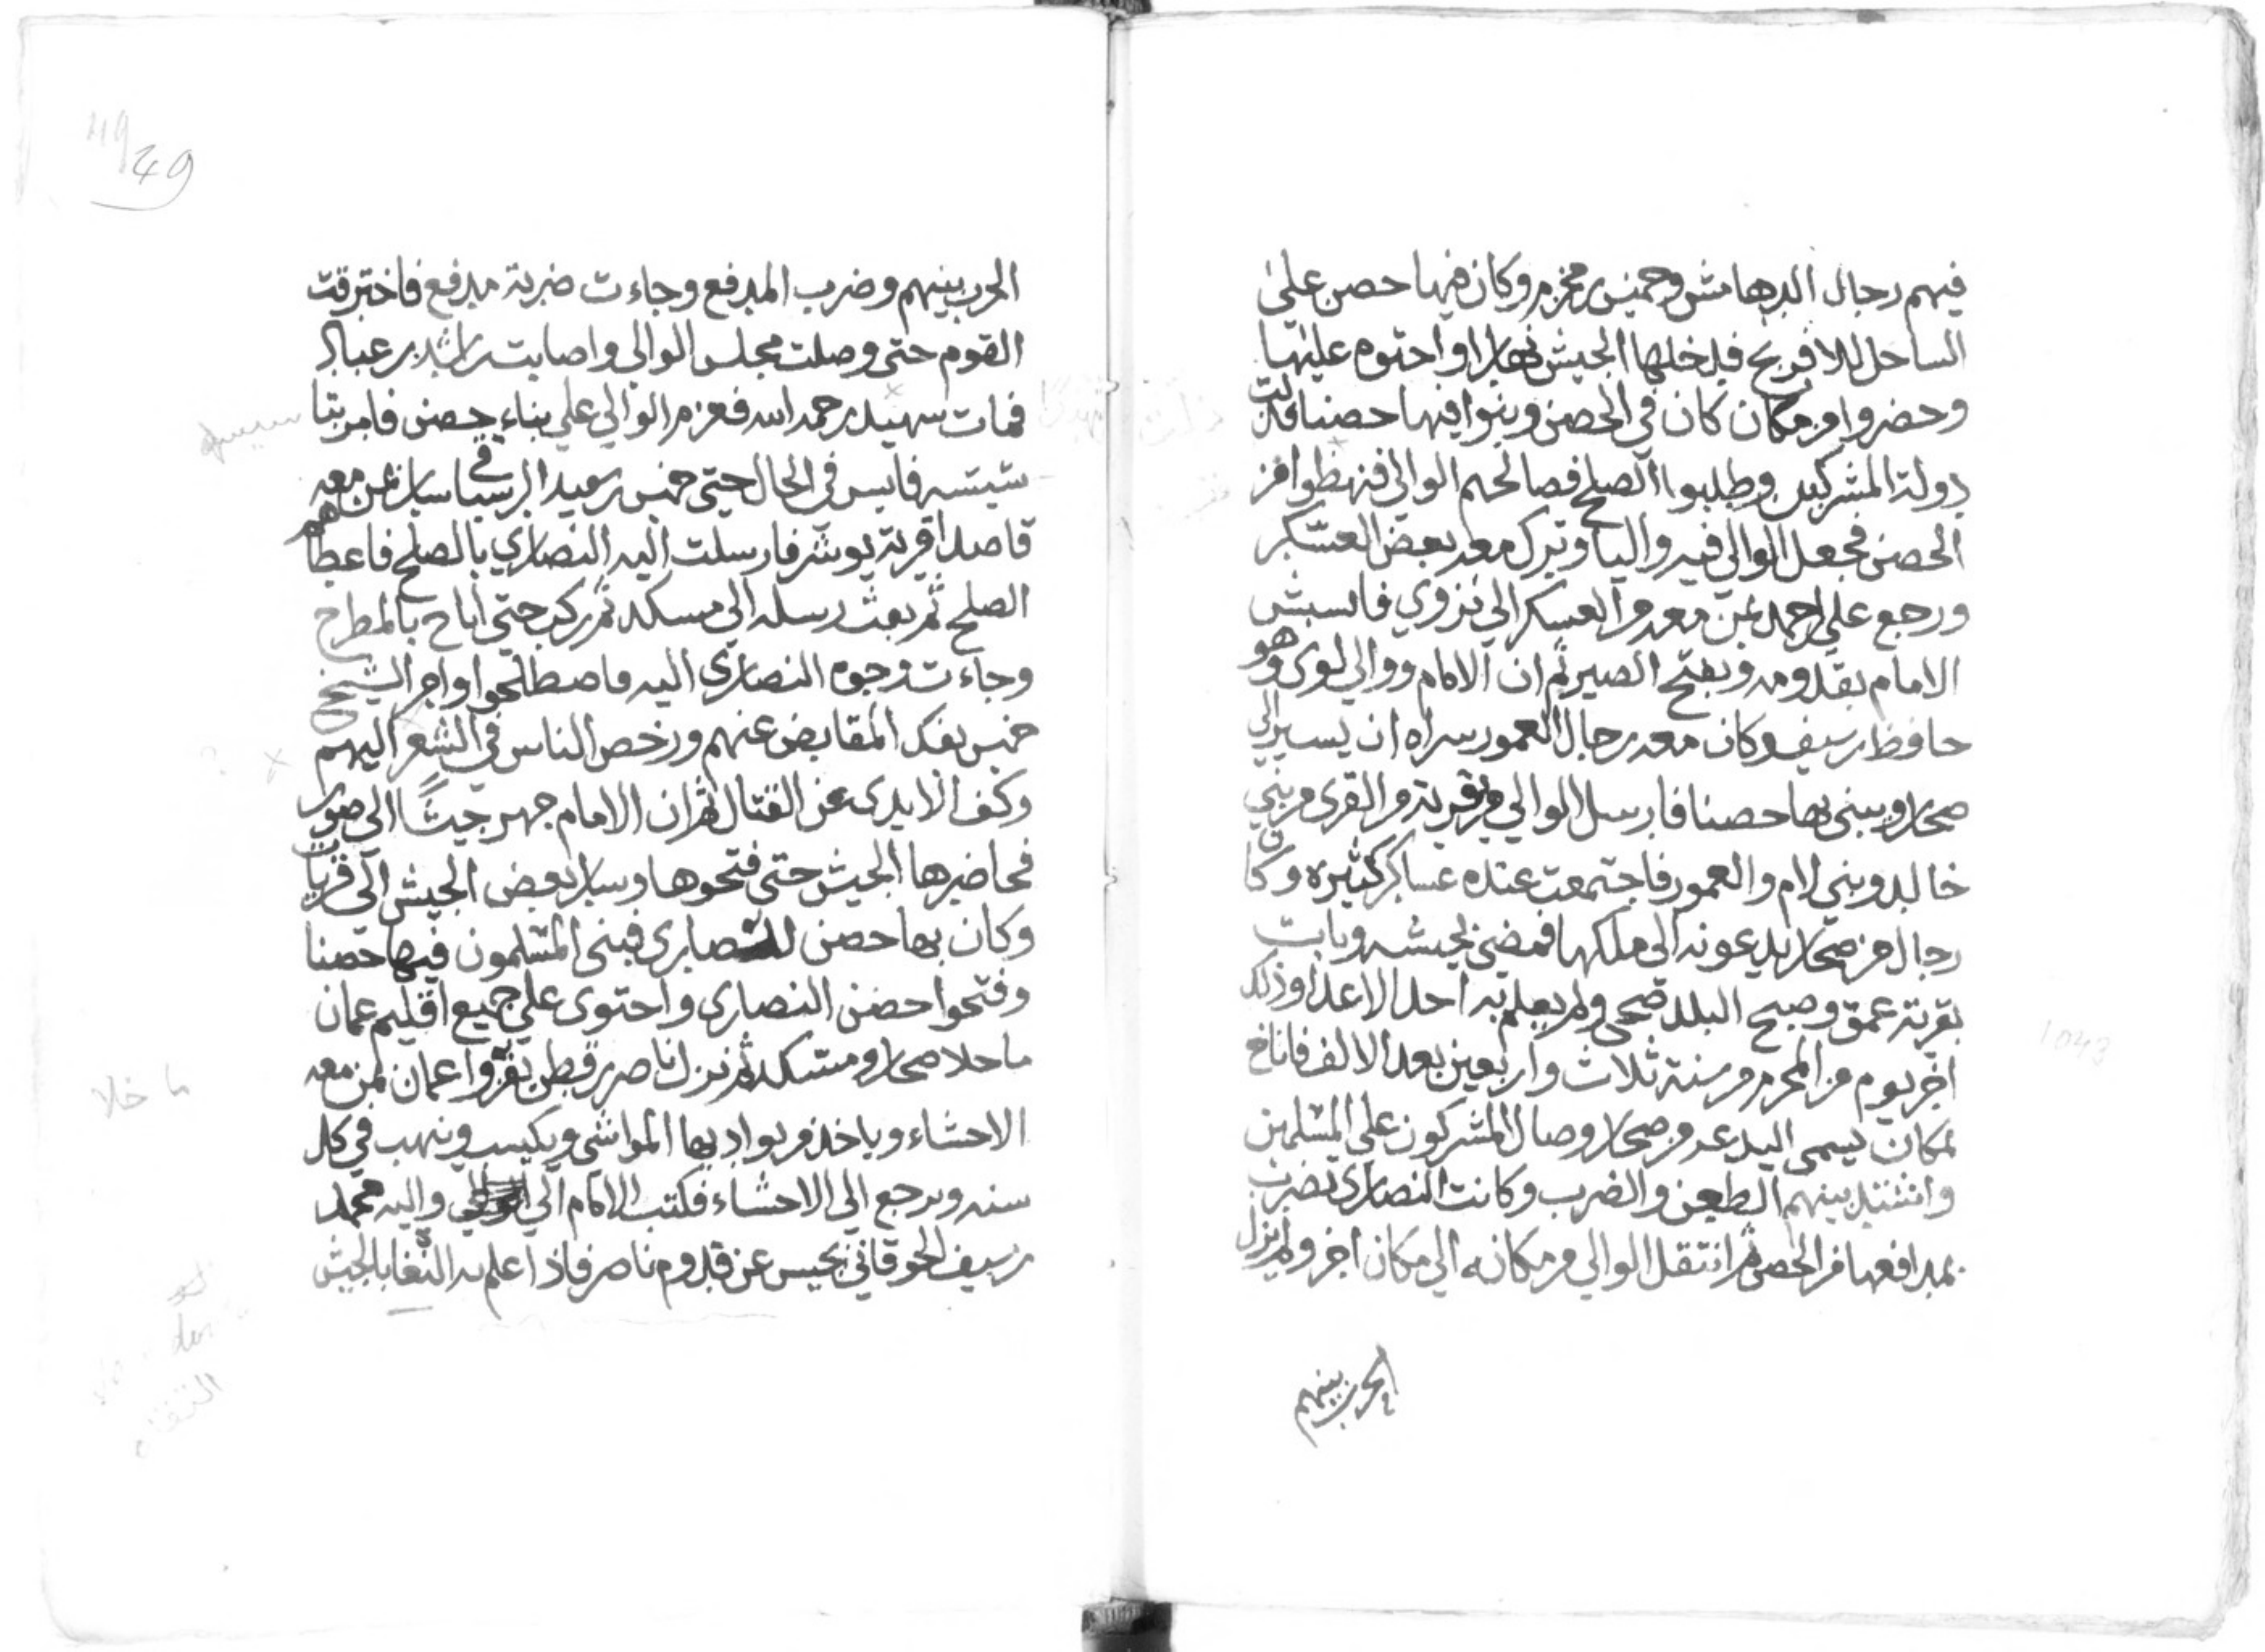 فيهم رجال الدهامش وخميس بن مخزم وكان فيها حصن على
الساحل للافرنج فدخلها الجيش نهارا واحتوه عليها
وحضروا من مكان كان في الحصن وبنوا فيها حصنا فذلت
دولة المشركين وطلبوا الصلح فصالحهم الوالي فنهظوا من
الحصن فجعل الوالي فيه واليا وترك معه بعض العسكر
ورجع علي بن احمد بمن معه من العسكر الي نزوي فاسبشر
الامام بقدومه وبفتح الصير ثم ان الامام ووالي لوى وهو
حافظ بن سيف وكان معه رجال العمور سراه ان يسير الي
صحار ويبنى بها حصنا فارسل الوالي من قرية من القرى من بني
خالد وبني لام والعمور فاجتمعت عنده عساكر كثيره وكان
رجال من صحار يدعونه الى ملكها فمضى بجيشه وبات
بقرية عمق وصبح البلد ضحى ولم يعلم به احد الاعدا وذلك
اخر يوم من المحرم من سنة ثلاث واربعين بعد الالف فاناخ
بمكان يسمى البدعه من صحار وصال المشركون على المسلمين
واشتد بينهم الطعن والضرب وكانت النصارى تضرب
بمدافعها من الحصن ثم انتقل الوالي من مكانه الي مكان اخر ولم يزل
الحرب بينهم
1043
49
49
الحرب بينهم وضرب المدفع وجاءت ضربة مدفع فاخترقت
القوم حتى وصلت مجلس الوالي واصابت راشد بن عباد
فمات شهيد رحمه الله فعزم الوالي علي بناء حصن فامر بتا
سيسه فاسس في الحال حتى خميس بن سعيد الرستاقي سار بمن معه
قاصدا قرية بوشر فارسلت اليه النصارى بالصلح فاعطاهم
الصلح ثم بعث رسله الي مسكد ثم ركب حتى اناخ بالمطرح
وجاءت وجوه النصارى اليه فاصطلحوا وامر الشيخ
خميس بفك المقابض عنهم ورخص الناس في الشعر اليهم
وكف الايدى عن القتال ثم ان الامام جهز جيشًا الي صور
فحاصرها الجيش حتى فتحوها وسار بعض الجيش الي قريات
وكان بها حصن للنصارى فبنى المسلمون فيها حصنا
وفتحوا حصن النصارى واحتوى علي جميع اقليم عمان
ما حلا صحار ومسكد ثم نزل ناصر بن قطن بغزوا عمان بمن معه
الاحشاء وياخذ من بواديها المواشى ويكيسب وينهب في كل
سنه ويرجع الي الاحشاء فكتب الامام الي واليه محمد
بن سيف الحوقاني بحيس عن قدوم ناصر فاذا علم به التقاه بالجيش
ما خلا
التقاه